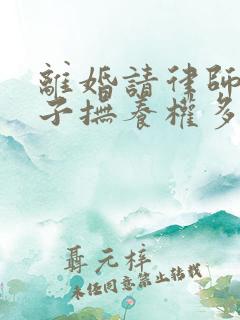 離婚請律師
子撫養權多
聶元梓
未經同意禁止轉載